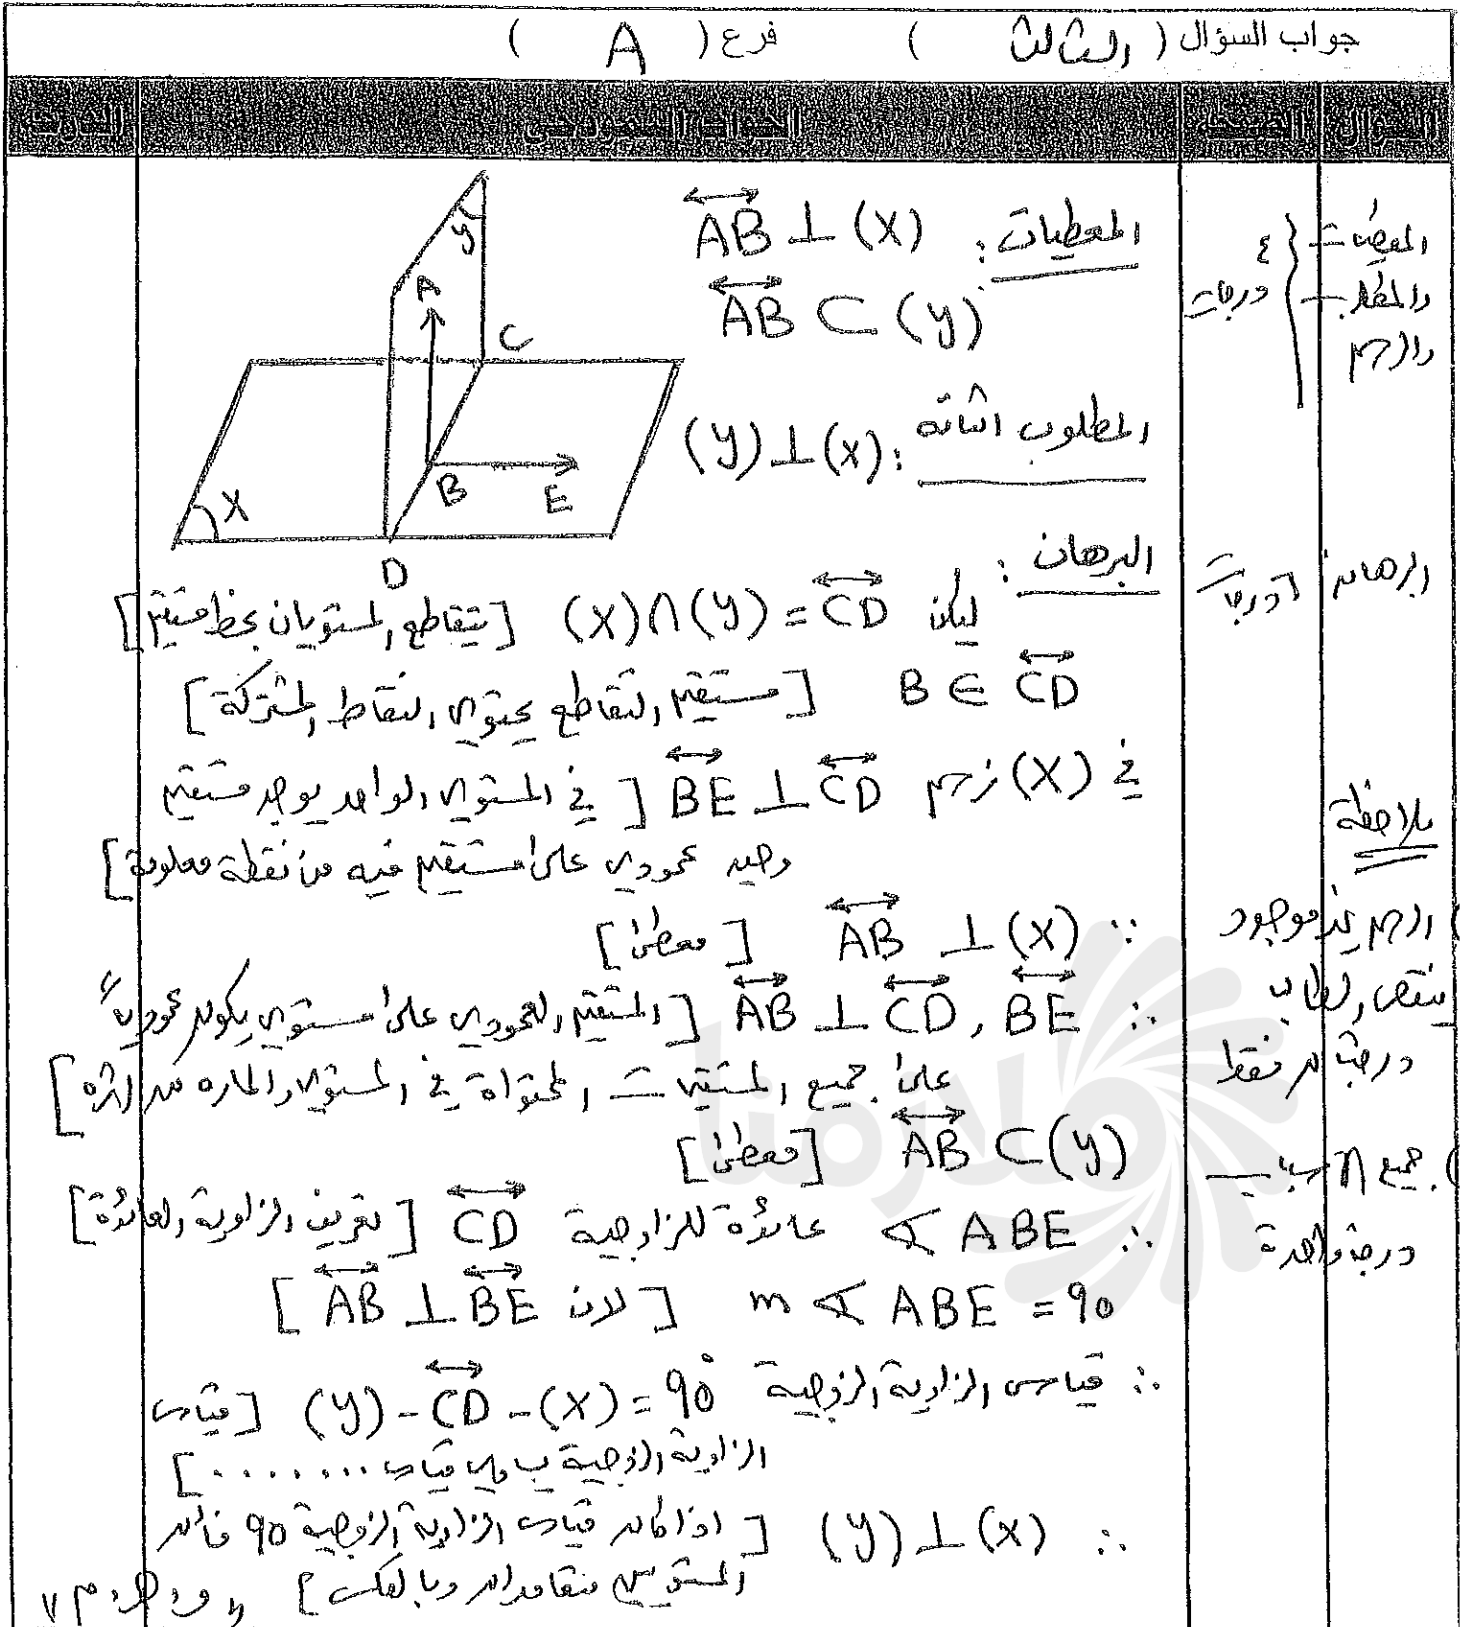 جواب السؤال ( الثالث ) فرع ( A )
السؤال الصفحة الجواب النموذجي الدرجة
المعطيات : AB ⊥ (X)
AB ⊂ (Y)
المطلوب اثباته : (Y) ⊥ (X)
A
B
C
D
E
X
Y
البرهان :
ليكن (X) ∩ (Y) = CD [ يتقاطع المستويان بخط مستقيم ]
B ∈ CD [ مستقيم التقاطع يحتوي النقاط المشتركة ]
في (X) نرسم BE ⊥ CD [ في المستوي الواحد يوجد مستقيم
وحيد عمودي على مستقيم فيه من نقطة معلومة ]
∵ AB ⊥ (X) [ معطى ]
∴ AB ⊥ CD , BE [ المستقيم العمودي على مستوي يكون عمودياً
على جميع المستقيمات المحتواة في المستوي والمارة من اثره ]
AB ⊂ (Y) [ معطى ]
∴ ∢ ABE عائدة للزاوية الزوجية CD [ تعريف الزاوية العائدة ]
m ∢ ABE = 90 [ لان AB ⊥ BE ]
∴ قياس الزاوية الزوجية (Y) - CD - (X) = 90° [ قياس
الزاوية الزوجية يساوي قياس ........ ]
∴ (Y) ⊥ (X) [ اذا كان قياس الزاوية الزوجية 90 فأن
المستويين متعامدان وبالعكس ] و . هـ . م
المعطيات
والمطلوب
والرسم
٤ درجات
البرهان ٦ درجات
ملاحظة
الرسم غير موجود
ينقص الطالب
درجتان فقط
جميع الاسباب
درجة واحدة
ملازمنا